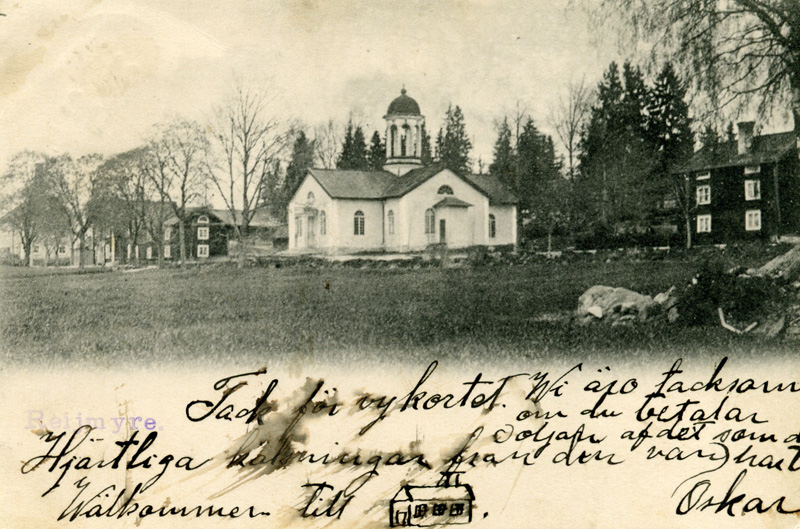 Reijmyre.
Tack för vykortet. Wi äro tacksam
om du betalar
afdet som d
Hjärtliga hälsningar från den
Wälkommen till
Oskar